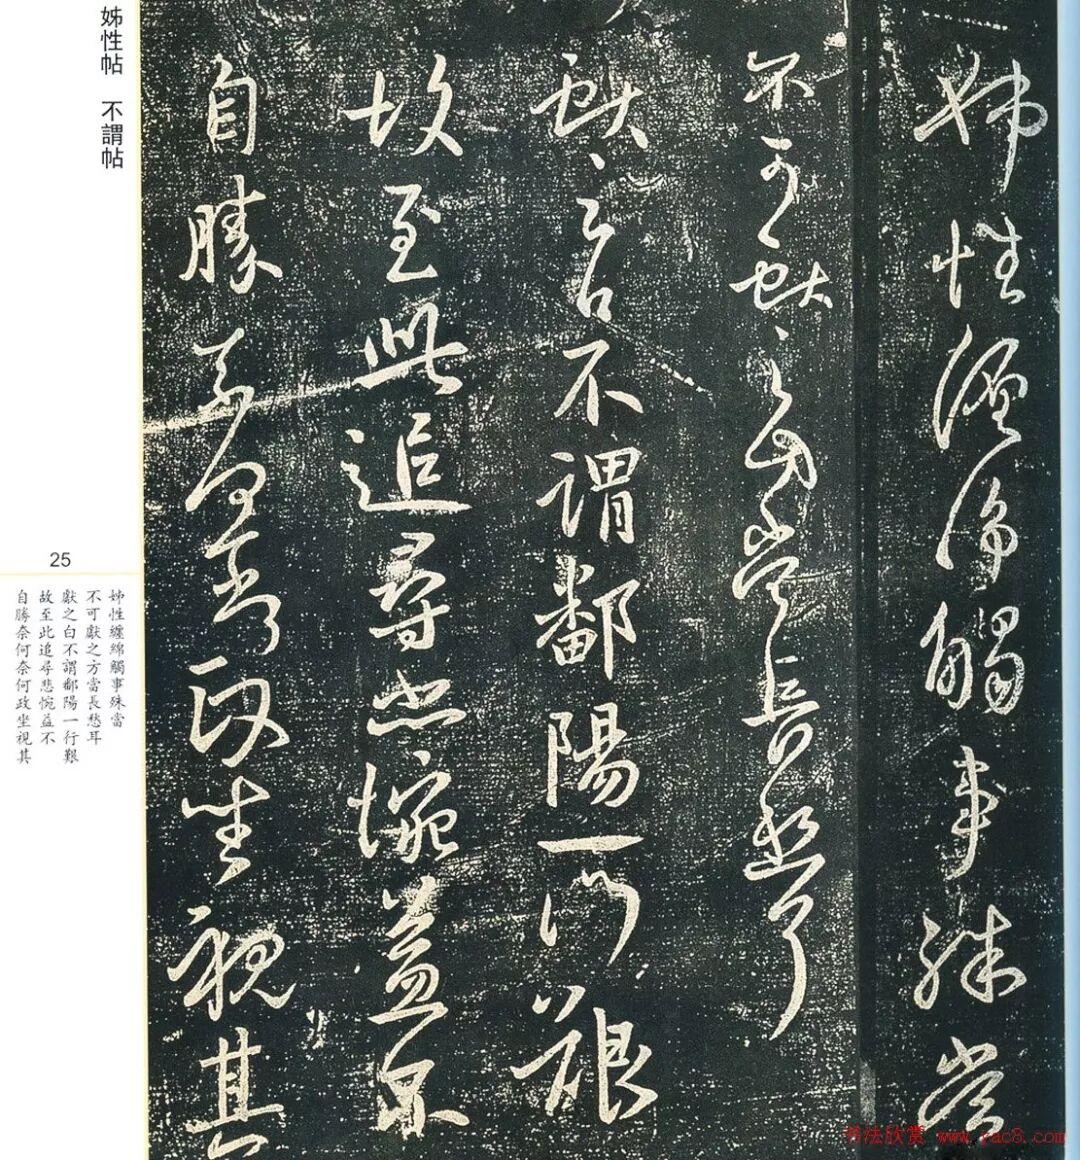 姊性纏綿觸事殊當
不可獻之方當長愁耳
獻之白不謂鄱陽一門艱
故至此追尋悲惋益不
自勝奈何奈何政坐視其
姊性帖 不謂帖
25
姊性纏綿觸事殊當
不可獻之方當長愁耳
獻之白不謂鄱陽一行艱
故至此追尋悲惋益不
自勝奈何奈何政坐視其
书法欣赏 www.yac8.com